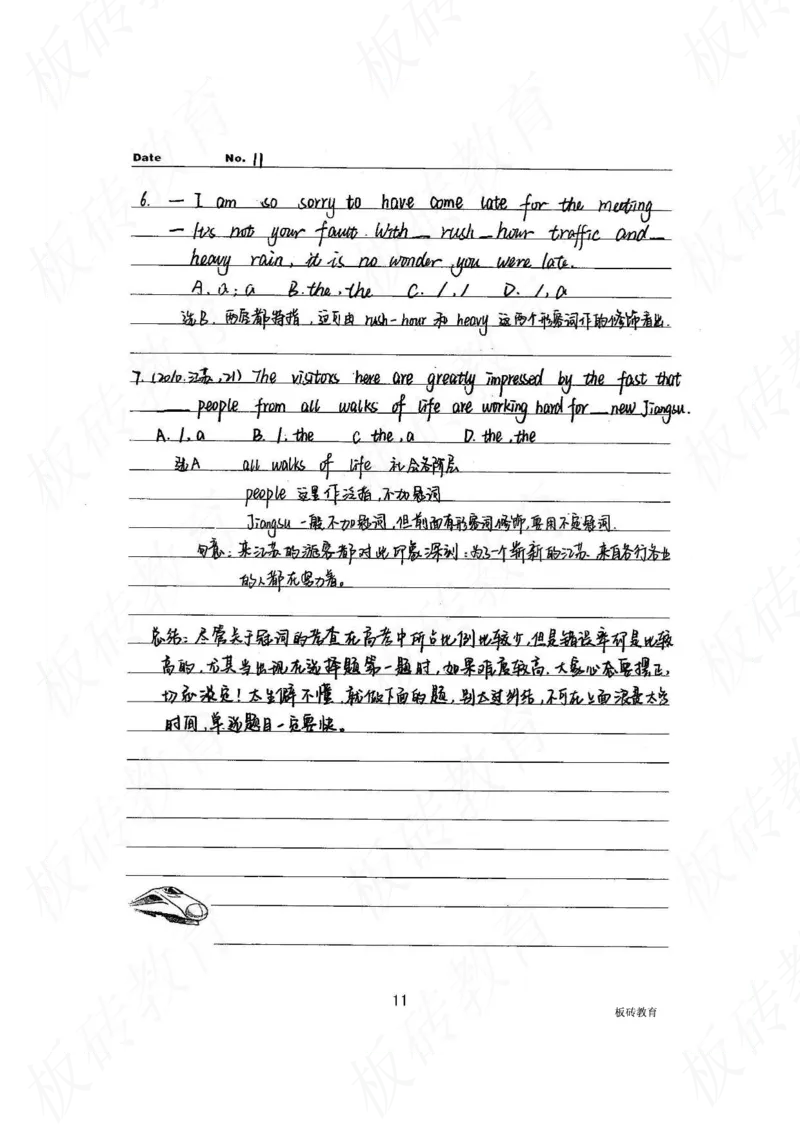 Date No. 11
6. — I am so sorry to have come late for the meeting
— It's not your fault. With __ rush-hour traffic and __
heavy rain, it is no wonder you were late.
A. a; a B. the, the C. /, / D. /, a
选B. 两层都特指,这可由 rush-hour 和 heavy 这两个形容词作的修饰看出.
7. (2010.江苏,21) The visitors here are greatly impressed by the fast that
____ people from all walks of life are working hard for __ new Jiangsu.
A. /, a B. /, the C. the, a D. the, the
选A all walks of life 社会各阶层
people 这里作泛指,不加冠词
Jiangsu 一般不加冠词,但前面有形容词修饰,要用不定冠词.
句意: 来江苏的游客都对此印象深刻: 为了一个崭新的江苏 来自各行各业
的人都在努力着。
总结: 尽管关于冠词的考查在高考中所占比例比较少,但是错误率却是比较
高的,尤其当出现在选择题第一题时,如果难度较高,大家心态要摆正,
切忌淡定!太生僻不懂,就做下面的题,别太过纠结,不可在上面浪费太多
时间,单选题目一定要快。
11
板砖教育